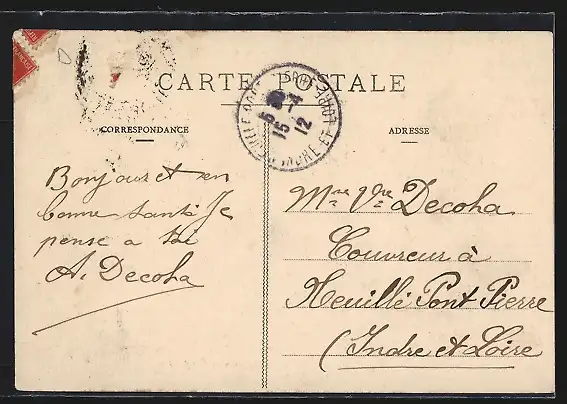 CARTE POSTALE
CORRESPONDANCE
ADRESSE
Bonjour et en
bonne santé Je
pense a toi
A. Decoha
Mme Vve Decoha
Couvreur à
Neuillé Pont Pierre
(Indre et Loire
15 -4
12
INDRE ET LOIRE